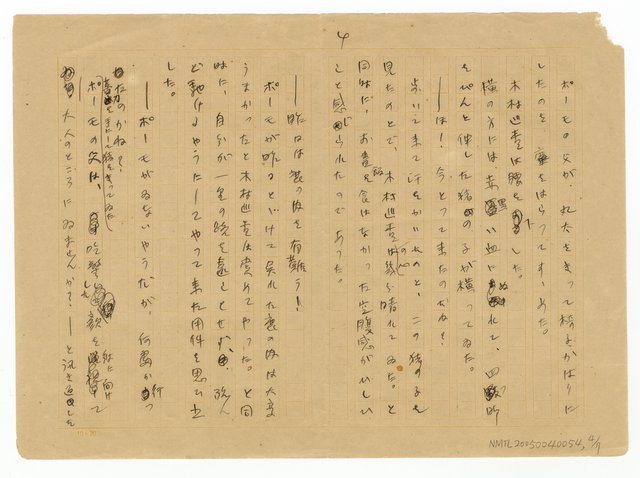 4
ポーモの父が、丸太をきって椅子がはりに
したのを、塵をはらってすゝめた。
木村巡査は腰を下した。
横の方には赤い血にぬれて、四肢
をぴんと伸した猪の子が横ってゐた。
――は!今とって来たのだね?
歩いて来て汗をかいたのと、この猪の子を
見たのとで、木村巡査は 晴れてゐた。と
同時に、お昼飯を食はなかった空腹感がはげしい
こと感じられたのであった。
――昨日は鹿の肉を有難う!
ポーモが昨日とどけて呉れた鹿の肉は大変
うまかったと木村巡査は賞めてやった。と同
時に、自分が一里の路を遠しとせず、
ど馳けるやうにしてやって来た用件を思ひ出
した。
――ポーモがゐないやうだが、何処か行っ
たのかね?
ポーモの父は、吃驚した顔を 向けて
大人のところにゐませんか?――と訊き返した
NMTL20050040054, 4/7